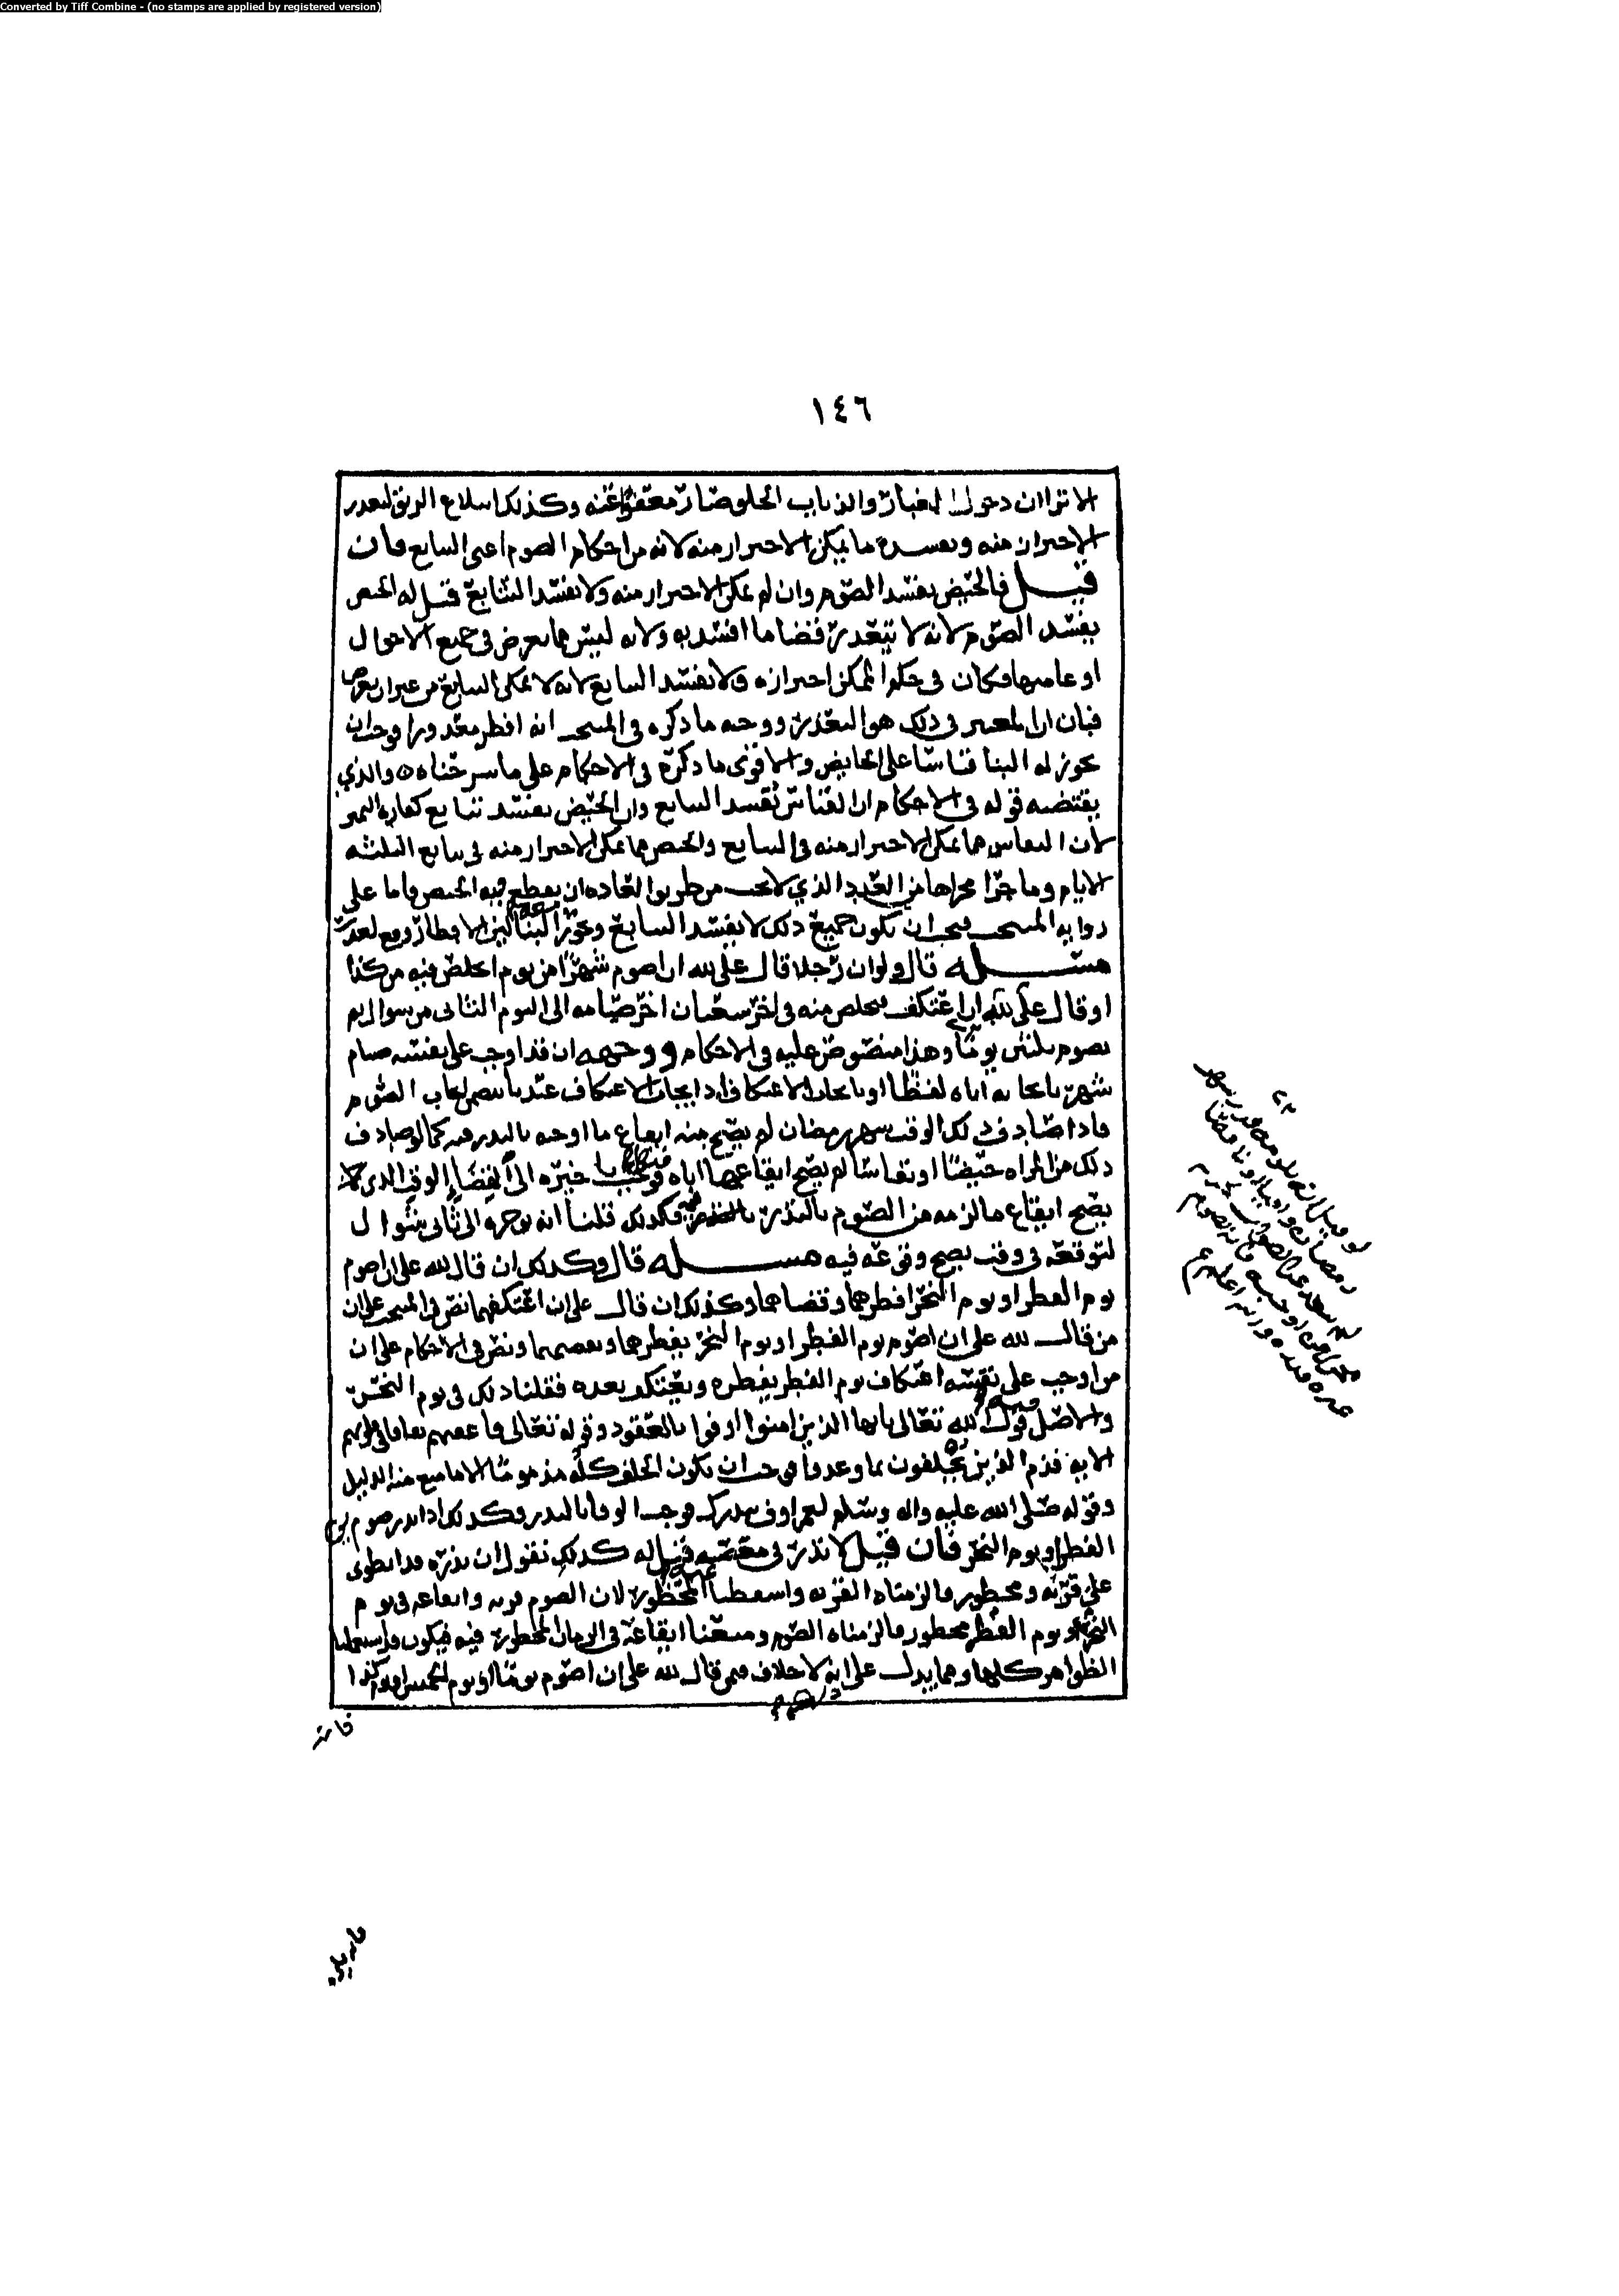 Converted by Tiff Combine - (no stamps are applied by registered version)
١٤٦
الا ترا ان دخول الغبار والذباب الحلق صار معفوا عنه وكذلك ابتلاع الريق لتعذر
الاحتراز منه ويفسده ما يمكن الاحتراز منه لانه من احكام الصوم اعني التتابع فان
قيل فالحيض يفسد الصوم وان لم يمكن الاحتراز منه ولا يفسد التتابع قيل له الحيض
يفسد الصوم لانه لا يتعذر قضا ما افسد به ولانه ليس مما يعرض في جميع الاحوال
او عامتها فكان في حكم الممكن احترازه ولا يفسد التتابع لانه لا يمكن التتابع من غير ان يعرض
فبان ان المعتبر في ذلك هو التعذر ووجه ما ذكره في المنتخب انه افطر معذورا فوجب ان
يجوز له البنا قياسا على الحايض والاقوى ما ذكره في الاحكام على ما شرحناه ه والذي
يقتضيه قوله في الاحكام ان النفاس يفسد التتابع وان الحيض يفسد تتابع كفارة اليمين
لان النفاس مما يمكن الاحتراز منه في التتابع والحيض مما يمكن الاحتراز منه في تتابع الثلثة
الايام وما جرا مجراها من العدد الذي لا يجب من طريق العاده ان يقطع فيه الحيض فاما على
رواية المنتخب فيجب ان يكون جميع ذلك لا يفسد التتابع ويجوز البنا لان الافطار وقع لعذر
مسئله قال ولو ان رجلا قال علي لله ان اصوم شهرا من يوم اتخلص فيه من كذا
او قال علي لله ان اعتكف فتخلص منه في اخر شعبان اخر صيامه الى اليوم الثاني من شوال ثم
يصوم ثلثين يوما وهذا منصوص عليه في الاحكام ووجهه انه قد اوجب على نفسه صيام
شهر بايجابه اياه لفظا او بايجاب الاعتكاف اذ ايجاب الاعتكاف عندنا يتضمن ايجاب الصوم
فاذا صادف ذلك الوقت شهر رمضان لم يصح منه ايقاع ما اوجبه بالنذر فيه كما لو صادف
ذلك من المراه حيضا او نفاسا لم يصح ايقاعها اياه فوجب تاخيره الى انقضا الوقت الذي لا
يصح ايقاع ما لزمه من الصوم بالنذر فيه فكذلك قلنا انه يوخره الى ثاني شوال
لتوقعه في وقت يصح وقوعه فيه مسئله قال وكذلك ان قال لله علي ان اصوم
يوم الفطر او يوم النحر افطرهما وقضاهما وكذلك ان قال علي ان اعتكفهما نص في المنتخب على ان
من قال لله علي ان اصوم يوم الفطر او يوم النحر يفطرهما ويقضيهما ونص في الاحكام على ان
من اوجب على نفسه اعتكاف يوم الفطر يفطره ويعتكف بعده فقلنا ذلك في يوم النحر
والاصل فيه قول الله تعالى يايها الذين امنوا اوفوا بالعقود وقوله تعالى فاعقبهم نفاقا في قلوبهم
الاية فذم الذين يخلفون بما وعدوا فيجب ان يكون الخلف كله مذموما الا ما منع منه الدليل
وقوله صلى الله عليه واله وسلم لعمر اوف بنذرك فوجب الوفا بالنذر وكذلك اذا نذر صوم يوم
الفطر او يوم النحر فان قيل لا نذر في معصيه قيل له كذلك نقول ان نذره قد انطوى
على قربه ومحظور فالزمناه القربه واسقطنا عنه المحظور لان الصوم قربه وايقاعه في يوم
النحر او يوم الفطر محظور فالزمناه الصوم ومنعنا ايقاعه في الزمان المحظور فيه فيكون قد استعملنا
الظواهر كلها ومما يدل على انه لا خلاف فيمن قال لله علي ان اصوم يوما او يوم الخميس او يوم كذا